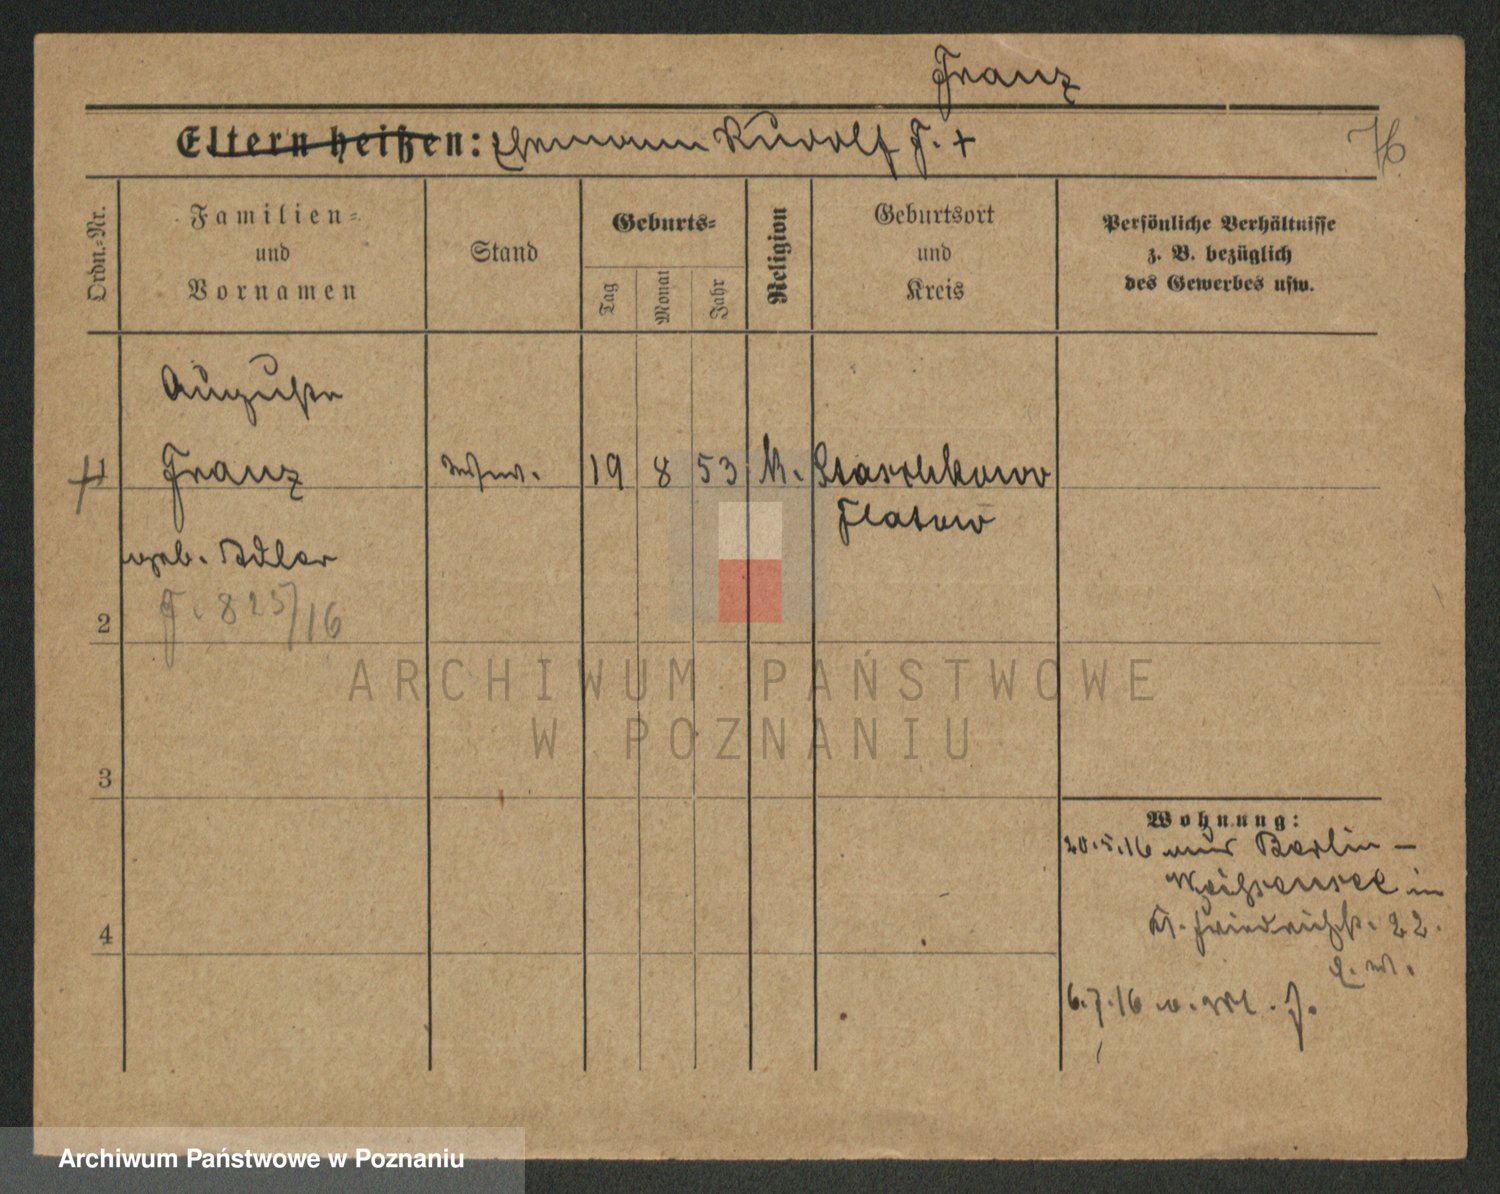 Franz
Eltern heißen: Ehemann Rudolf F. +
76
Ordn.=Nr.
Familien=
und
Vornamen
Stand
Geburts=
Tag
Monat
Jahr
Religion
Geburtsort
und
Kreis
Persönliche Verhältnisse
z. B. bezüglich
des Gewerbes usw.
Auguste
1 Franz Wwe. 19 8 53 k.
Flatow
geb. Adler
F. 825/16
2
3
4
Wohnung:
20.5.16 aus Berlin –
Weißensee in
Friedrichst. 22.
6.7.16
ARCHIWUM PAŃSTWOWE
W POZNANIU
Archiwum Państwowe w Poznaniu